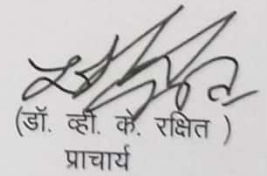 (डॉ. व्ही. के. रक्षित )
प्राचार्य